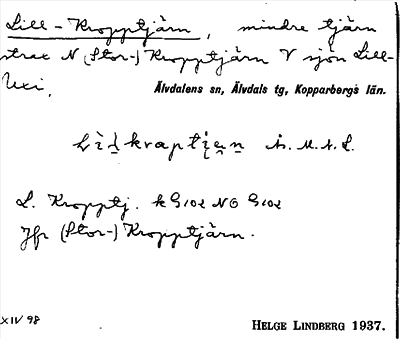 Lill-Kropptjärn, mindre tjärn
strax N (Stor-) Kropptjärn V sjön Lill-
Uxi.
Älvdalens sn, Älvdals tg, Kopparbergs län.
L. Kropptj. k G102 NO G102
Jfr (Stor-) Kropptjärn.
XIV 98
HELGE LINDBERG 1937.